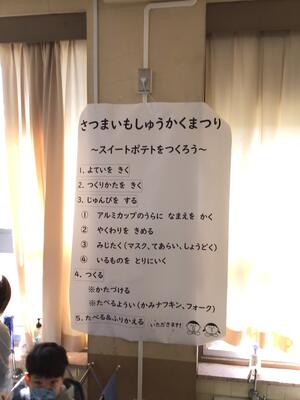 さつまいもしゅうかくまつり
～スイートポテトをつくろう～
1. よていを きく
2. つくりかたを きく
3. じゅんびを する
① アルミカップのうらに なまえを かく
② やくわりを きめる
③ みじたく(マスク、てあらい、しょうどく)
④ いるものを とりにいく
4. つくる
※かたづける
※たべるようい(かみナフキン、フォーク)
5. たべる&ふりかえる いただきます!